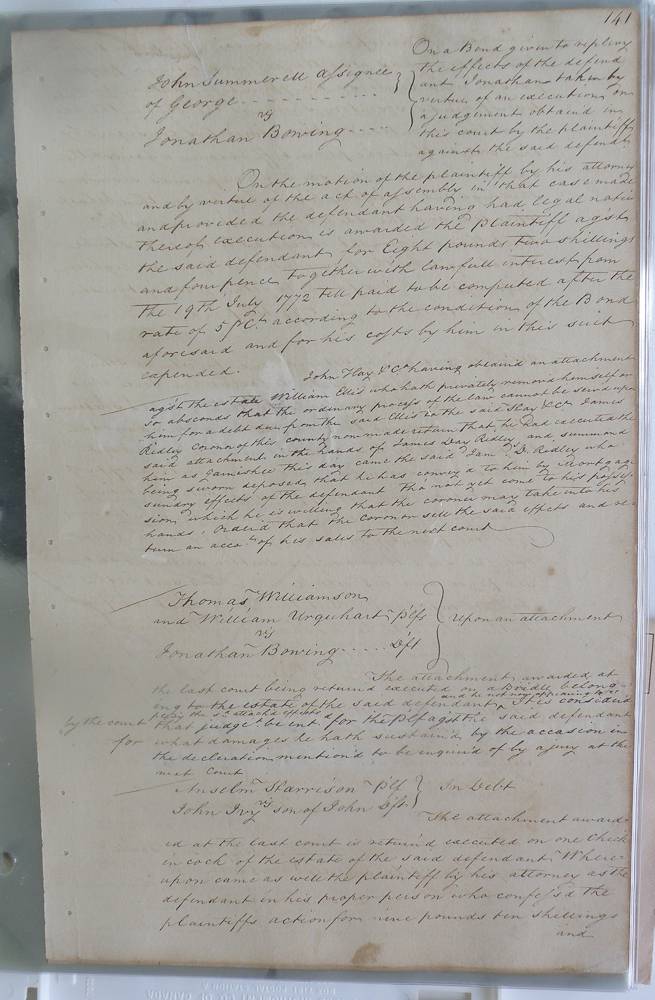 141
John Summerell assignee
of George - - - - - - - - - - -
vs
Jonathan Bowing - - - -
On a Bond given to replevy
the effects of the defend
ant Jonathan taken by
virtue of an execution, on
a judgement obtain'd in
this court by the plaintiff
against the said defendt
On the motion of the plaintiff by his attorney
and by virtue of the act of assembly in that case made
and provided the defendant having had legal notice
thereof execution is awarded the plaintiff agst
the said defendant for Eight pounds two shillings
and four pence together with lawfull interest from
the 19th July 1772 till paid to be computed after the
rate of 5 pCt according to the condition of the Bond
aforesaid and for his costs by him in this suit
expended.
John Hay & Co having obtain'd an attachment
agst the estate William Ellis who hath privately remov'd himself or
so absconds that the ordinary process of the law cannot be serv'd upon
him for a debt due from the said Ellis to the said Hay & Co James
Ridley Coroner of this county now made return that he had executed the
said attachment in the hands of James Day Ridley and summond
him as Garnishee this day came the said Jams D. Ridley who
being sworn deposed that he has convey'd to him by Mortgage
sundry effects of the defendant tho not yet come to his posses-
sion which he is willing that the coroner may take into his
hands. Order'd that the coroner sell the said effects and re-
turn an accot of his sales to the next court
Thomas Williamson
and William Urquhart Plfs
vs
Jonathan Bowing - - - - - Dft
Upon an attachment
The attachment awarded at
the last court being return'd executed on a Bridle belong-
ing to the estate of the said defendant and he not now appearing to re
plevy the sd attach'd effects It is consider'd
by the court that judgt be ent. for the Plf agst the said defendant
for what damages he hath sustain'd by the occasion in
the declaration mention'd to be inquir'd of by a jury at the
next Court
Anselm Harrison Plf
vs
John Ivy son of John Dft
In Debt
The attachment award-
ed at the last court is return'd executed on one Chick
en cock of the estate of the said defendant Where-
upon came as well the plaintiff by his attorney as the
defendant in his proper person who confess'd the
plaintiffs action for nine pounds ten shillings
and